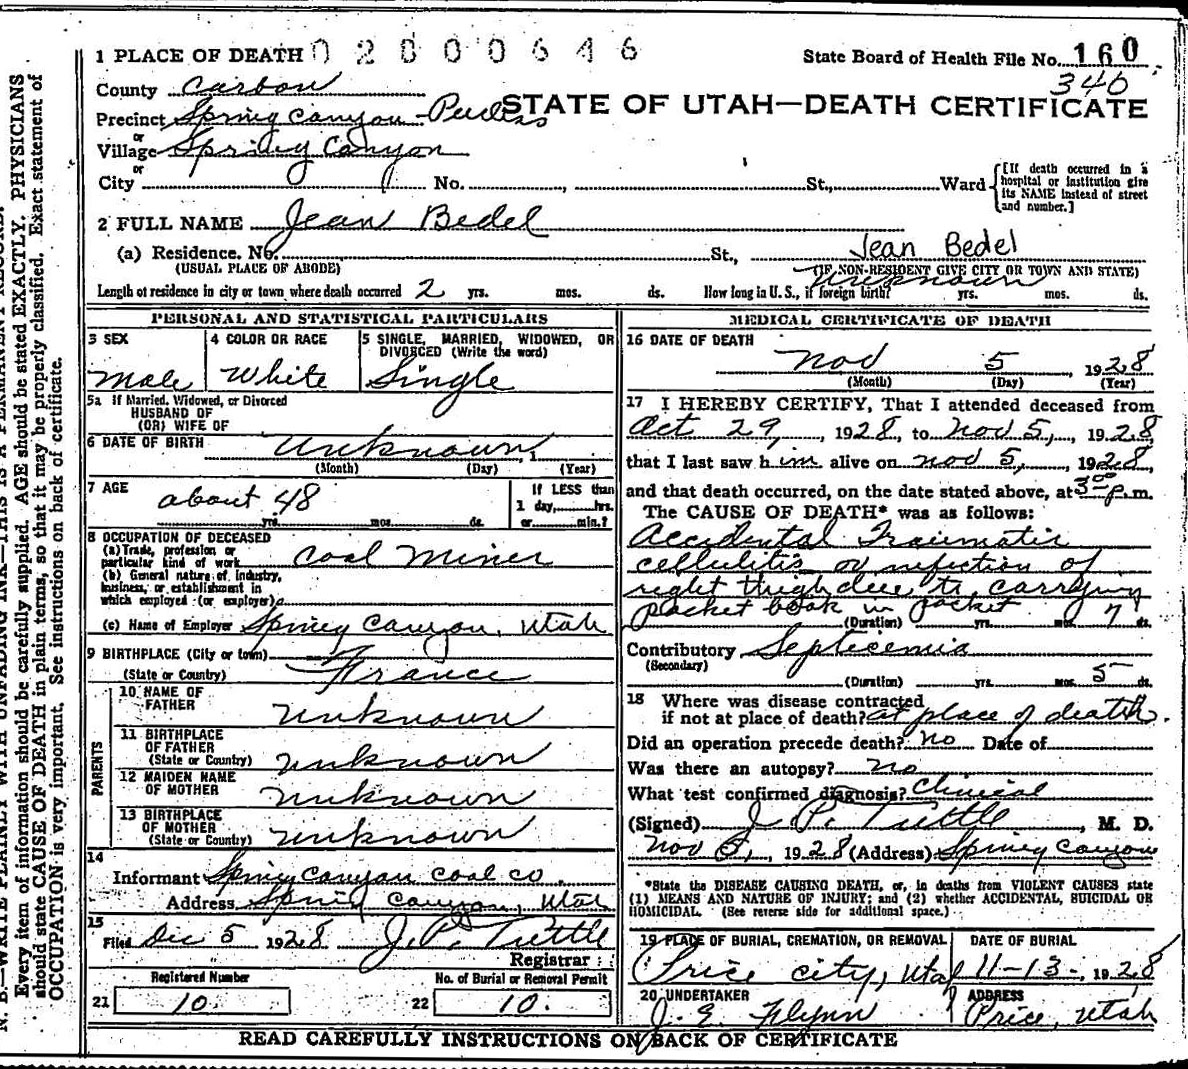 1 PLACE OF DEATH 02000646 State Board of Health File No. 160
County Carbon 340
STATE OF UTAH—DEATH CERTIFICATE
Precinct Spring Canyon
or
Village Spring Canyon
or
City No. , St., Ward
[If death occurred in a hospital or institution give its NAME instead of street and number.]
2 FULL NAME Jean Bedel
(a) Residence. No. St., Jean Bedel
(USUAL PLACE OF ABODE) (IF NON-RESIDENT GIVE CITY OR TOWN AND STATE)
Length of residence in city or town where death occurred 2 yrs. mos. ds. How long in U. S., if foreign birth? Unknown yrs. mos. ds.
PERSONAL AND STATISTICAL PARTICULARS
3 SEX
Male
4 COLOR OR RACE
White
5 SINGLE, MARRIED, WIDOWED, OR DIVORCED (Write the word)
Single
5a If Married, Widowed, or Divorced
HUSBAND OF
(OR) WIFE OF
6 DATE OF BIRTH Unknown, 1
(Month) (Day) (Year)
7 AGE about 48
yrs. mos. ds.
If LESS than
1 day, hrs.
or min.?
8 OCCUPATION OF DECEASED
(a) Trade, profession or
particular kind of work Coal Miner
(b) General nature of Industry,
business, or establishment in
which employed (or employer)
(c) Name of Employer Spring Canyon, Utah
9 BIRTHPLACE (City or town)
(State or Country) France
PARENTS
10 NAME OF
FATHER Unknown
11 BIRTHPLACE
OF FATHER
(State or Country) Unknown
12 MAIDEN NAME
OF MOTHER Unknown
13 BIRTHPLACE
OF MOTHER
(State or Country) Unknown
14
Informant Spring Canyon Coal Co.
Address Spring Canyon, Utah
15
Filed Dec 5 1928 J. P. Tuttle
Registrar
Registered Number
21 10
No. of Burial or Removal Permit
22 10.
MEDICAL CERTIFICATE OF DEATH
16 DATE OF DEATH
Nov 5, 1928
(Month) (Day) (Year)
17 I HEREBY CERTIFY, That I attended deceased from
Oct 29, 1928, to Nov 5, 1928,
that I last saw him alive on Nov 5, 1928,
and that death occurred, on the date stated above, at 3 00 p.m.
The CAUSE OF DEATH* was as follows:
Accidental Traumatic
cellulitis or infection of
right thigh due to carrying
pocket book in pocket
(Duration) yrs. mos. 7 ds.
Contributory Septicemia
(Secondary)
(Duration) yrs. mos. 5 ds.
18 Where was disease contracted
if not at place of death? at place of death.
Did an operation precede death? no Date of
Was there an autopsy? no
What test confirmed diagnosis? Clinical
(Signed) J. P. Tuttle, M. D.
Nov 5, 1928 (Address) Spring Canyon
*State the DISEASE CAUSING DEATH, or, in deaths from VIOLENT CAUSES state
(1) MEANS AND NATURE OF INJURY; and (2) whether ACCIDENTAL, SUICIDAL OR
HOMICIDAL. (See reverse side for additional space.)
19 PLACE OF BURIAL, CREMATION, OR REMOVAL
Price City, Utah
DATE OF BURIAL
11-13-, 1928
20 UNDERTAKER
J. E. Flynn
ADDRESS
Price, Utah
READ CAREFULLY INSTRUCTIONS ON BACK OF CERTIFICATE
N. B.—WRITE PLAINLY WITH UNFADING INK—THIS IS A PERMANENT RECORD.
Every item of information should be carefully supplied. AGE should be stated EXACTLY. PHYSICIANS
should state CAUSE OF DEATH in plain terms, so that it may be properly classified. Exact statement of
OCCUPATION is very important. See instructions on back of certificate.